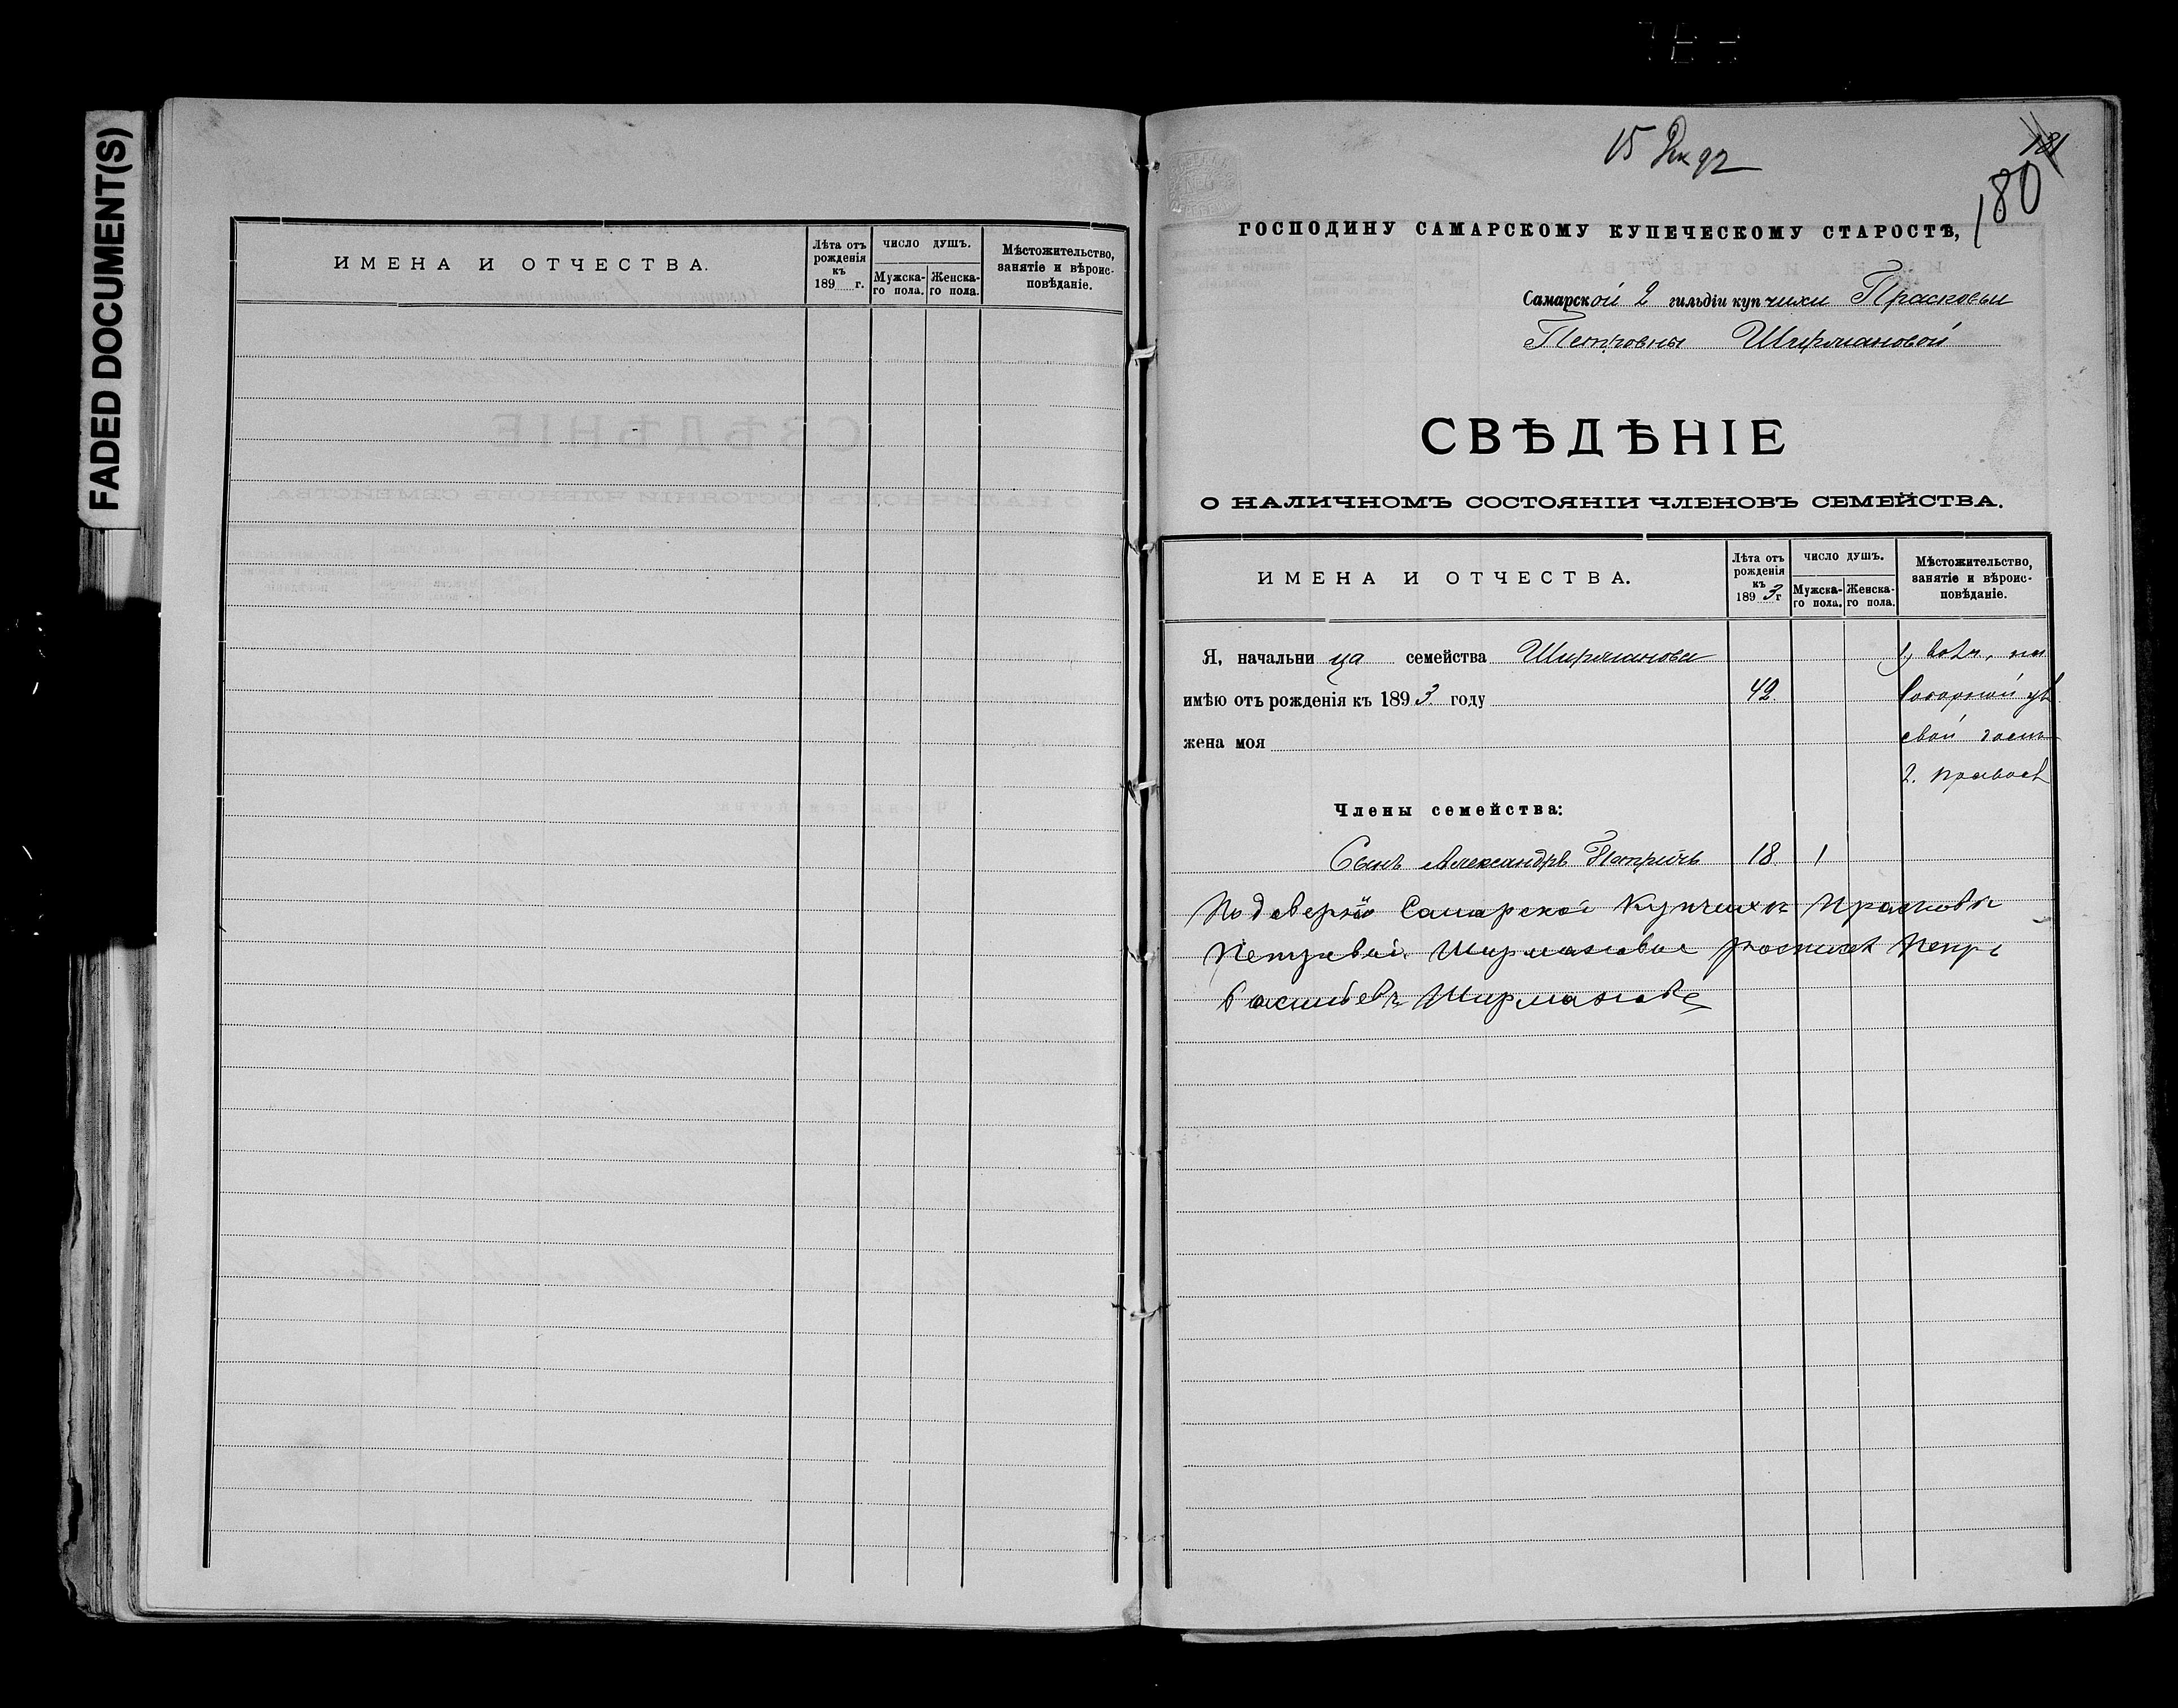 FADED DOCUMENT(S)
ИМЕНА И ОТЧЕСТВА.
Лѣта отъ рожденія къ 189 г.
ЧИСЛО ДУШЪ.
Мужска-го пола.
Женска-го пола.
Мѣстожительство, занятіе и вѣроис-повѣданіе.
15 Дек 92
181
180
ГОСПОДИНУ САМАРСКОМУ КУПЕЧЕСКОМУ СТАРОСТѢ,
Самарской 2 гильдіи купчихи Прасковьи
Петровны Ширмановой
СВѢДѢНІЕ
О НАЛИЧНОМЪ СОСТОЯНІИ ЧЛЕНОВЪ СЕМЕЙСТВА.
ИМЕНА И ОТЧЕСТВА.
Лѣта отъ рожденія къ 1893 г
ЧИСЛО ДУШЪ.
Мужска-го пола.
Женска-го пола.
Мѣстожительство, занятіе и вѣроис-повѣданіе.
Я, начальница семейства Ширманова
имѣю отъ рожденія къ 1893 году 42
свой
жена моя
2. 
Члены семейства:
Сынъ Александръ Петричъ 18 1
По довѣрію Самарской Купчихи Прасковьи
Петровой Ширмановой Петръ
Васильевъ Ширмановъ